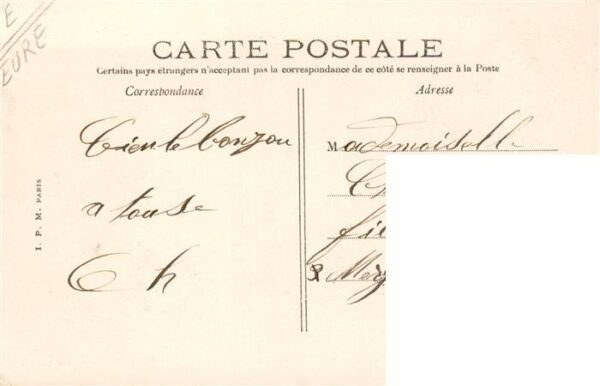 E
EURE
CARTE POSTALE
Certains pays étrangers n'acceptant pas la correspondance de ce côté se renseigner à la Poste
Correspondance
Adresse
bonjou
a touse
C h
Mademoiselle
I. P. M. PARIS